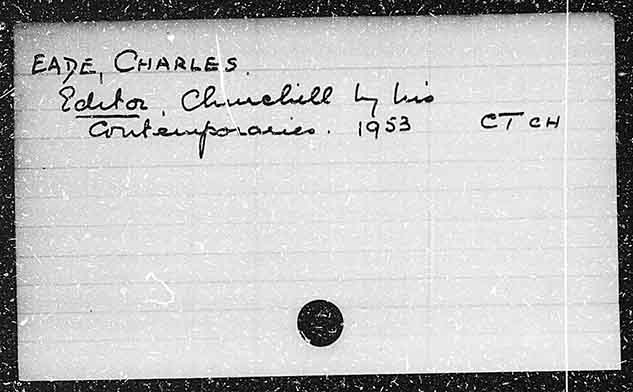 EADE, CHARLES.
Editor, Churchill by his
Contemporaries. 1953 CTCH